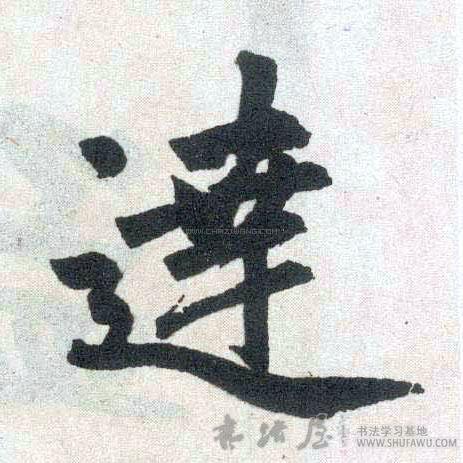 達
WWW.CHAZIDONG.COM
书法屋
书法学习基地
WWW.SHUFAWU.COM